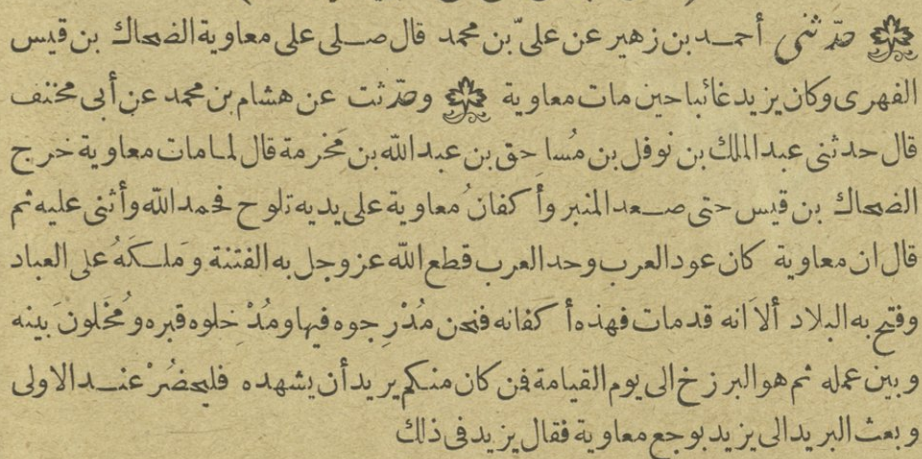 حدّثنى أحمد بن زهير عن علىّ بن محمد قال صلى على معاوية الضحاك بن قيس
الفهرى وكان يزيد غائبا حين مات معاوية وحدّثت عن هشام بن محمد عن أبى مخنف
قال حدثنى عبد الملك بن نوفل بن مُساحق بن عبد الله بن مَخرمة قال لما مات معاوية خرج
الضحاك بن قيس حتى صعد المنبر وأكفانُ معاوية على يديه تلوح فحمد الله وأثنى عليه ثم
قال ان معاوية كان عود العرب وحد العرب قطع الله عز وجل به الفتنة وَملّكَهُ على العباد
وفتح به البلاد ألاَ انه قد مات فهذه أكفانه فنحن مُدْرِجوه فيها ومُدْخلوه قبره ومُخَلونَ بينه
وبين عمله ثم هو البرزخ الى يوم القيامة فمن كان منكم يريد أن يشهده فليحضُرْ عند الاولى
وبعث البريد الى يزيد بوجع معاوية فقال يزيد فى ذلك